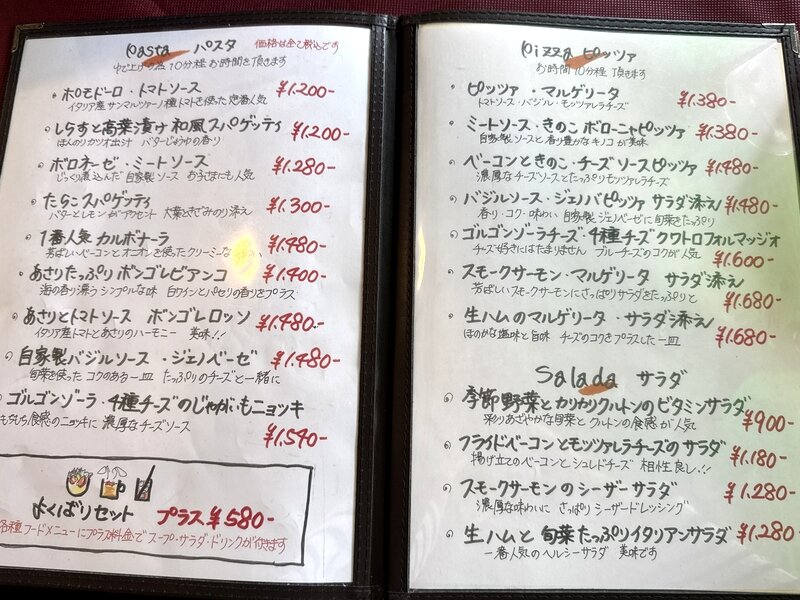 Pasta パスタ 価格は全て税込です
ゆで上げの為 10分程 お時間を頂きます
・ポモドーロ・トマトソース ¥1.200-
イタリア産 サンマルツァーノ種トマトを使った定番人気
・しらすと高菜漬け 和風スパゲッティ ¥1.200-
ほんのりカツオ出汁 バターじょうゆの香り
・ボロネーゼ・ミートソース ¥1.280-
じっくり煮込んだ 自家製ソース お子さまにも人気
・たらこスパゲッティ ¥1.300-
バターとレモンがアクセント 大葉ときざみのり添え
・1番人気 カルボナーラ ¥1.480-
芳ばしいベーコンとオニオンを使ったクリーミーな
・あさりたっぷり ボンゴレビアンコ ¥1.400-
海の香り漂う シンプルな味 白ワインとパセリの香りをプラス
・あさりとトマトソース ボンゴレロッソ ¥1.480-
イタリア産トマトとあさりのハーモニー 美味!!
・自家製バジルソース・ジェノベーゼ ¥1.480-
旬菜を使った コクのある一皿 たっぷりのチーズと一緒に
・ゴルゴンゾーラ・4種チーズのじゃがいもニョッキ
もちもち食感のニョッキに 濃厚なチーズソース
¥1.540-
よくばりセット プラス ¥580-
各種フードメニューにプラス料金でスープ・サラダ・ドリンクが付きます
Pizza ピッツァ
お時間10分程 頂きます
・ピッツァ・マルゲリータ ¥1.380-
トマトソース・バジル・モッツァレラチーズ
・ミートソース・きのこ ボローニャピッツァ ¥1.380-
自家製ソースと香り豊かなキノコが美味
・ベーコンときのこ・チーズソースピッツァ ¥1.480-
濃厚なチーズソースとたっぷりモッツァレラチーズ
・バジルソース・ジェノバピッツァ サラダ添え ¥1.480-
香り・コク・味わい 自家製ジェノベーゼに旬菜をたっぷり
・ゴルゴンゾーラチーズ・4種チーズ クワトロフォルマッジオ
チーズ好きにはたまりません ブルーチーズのコクが人気
¥1.600-
・スモークサーモン・マルゲリータ サラダ添え
芳ばしいスモークサーモンにさっぱりサラダをたっぷりと
¥1.680-
・生ハムのマルゲリータ・サラダ添え ¥1.680-
ほのかな塩味と旨味 チーズのコクをプラスした一皿
Salada サラダ
・季節野菜とカリカリクルトンのビタミンサラダ
彩りあざやかな旬菜とクルトンの食感が人気 ¥900-
・フライドベーコンとモッツァレラチーズのサラダ
揚げ立てのベーコンと シュレドチーズ 相性良し!! ¥1.180-
・スモークサーモンのシーザーサラダ ¥1.280-
濃厚な味わいに さっぱり シーザードレッシング
・生ハムと旬菜たっぷりイタリアンサラダ ¥1.280-
一番人気のヘルシーサラダ 美味です